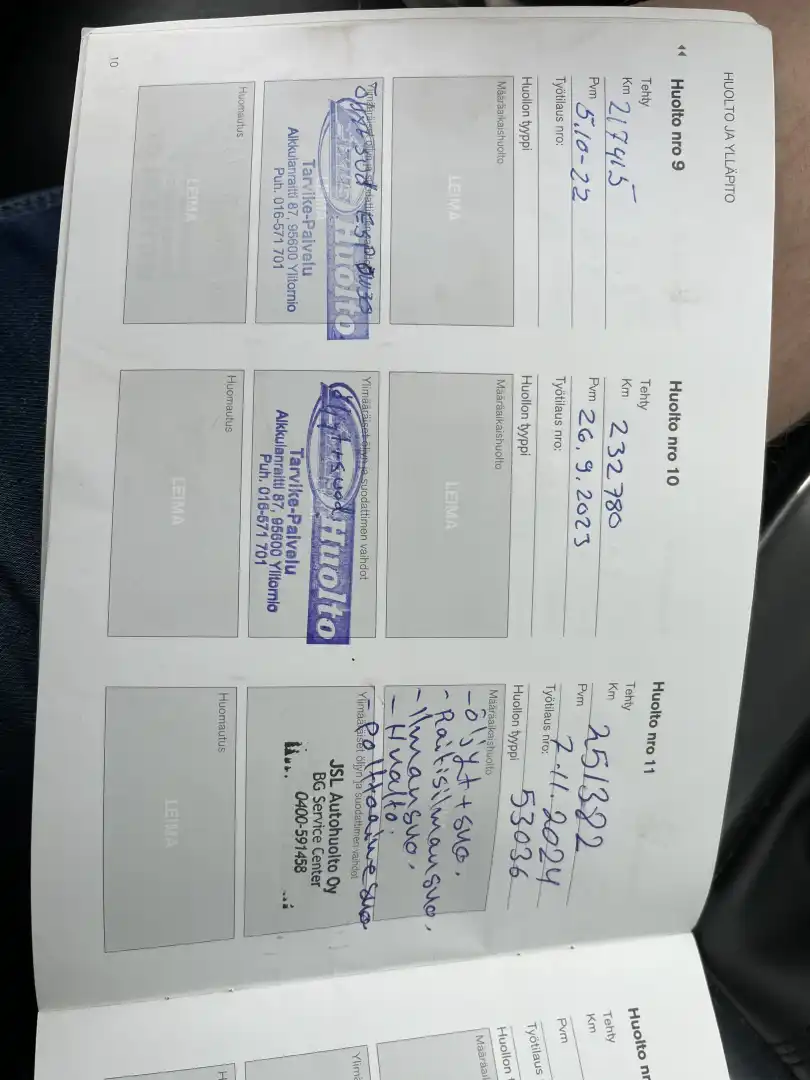 HUOLTO JA YLLÄPITO
Huolto nro 9
Tehty
Km 217415
Pvm 5.10-22
Työtilaus nro:
Huollon tyyppi
Määräaikaishuolto
LEIMA
Ylimääräiset öljyn ja suodattimen vaihdot
Huolto
Tarvike-Palvelu
Alkkulanraitti 87, 95600 Ylitornio
Puh. 016-571 701
Huomautus
LEIMA
Huolto nro 10
Tehty
Km 232780
Pvm 26.9.2023
Työtilaus nro:
Huollon tyyppi
Määräaikaishuolto
LEIMA
Ylimääräiset öljyn ja suodattimen vaihdot
öljyt+suod
Huolto
Tarvike-Palvelu
Alkkulanraitti 87, 95600 Ylitornio
Puh. 016-571 701
Huomautus
LEIMA
Huolto nro 11
Tehty
Km 251382
Pvm 7.11.2024
Työtilaus nro: 53036
Huollon tyyppi
Määräaikaishuolto
- öljyt+suo,
- Raitisilmansuo,
- Ilmansuo,
- Huolto.
- Polttoainesuo
Ylimääräiset öljyn ja suodattimen vaihdot
JSL Autohuolto Oy
BG Service Center
0400-591458
Huomautus
LEIMA
10
Huolto nr
Tehty
Km
Pvm
Työtilaus
Huollon t
Määräai
Ylim
H